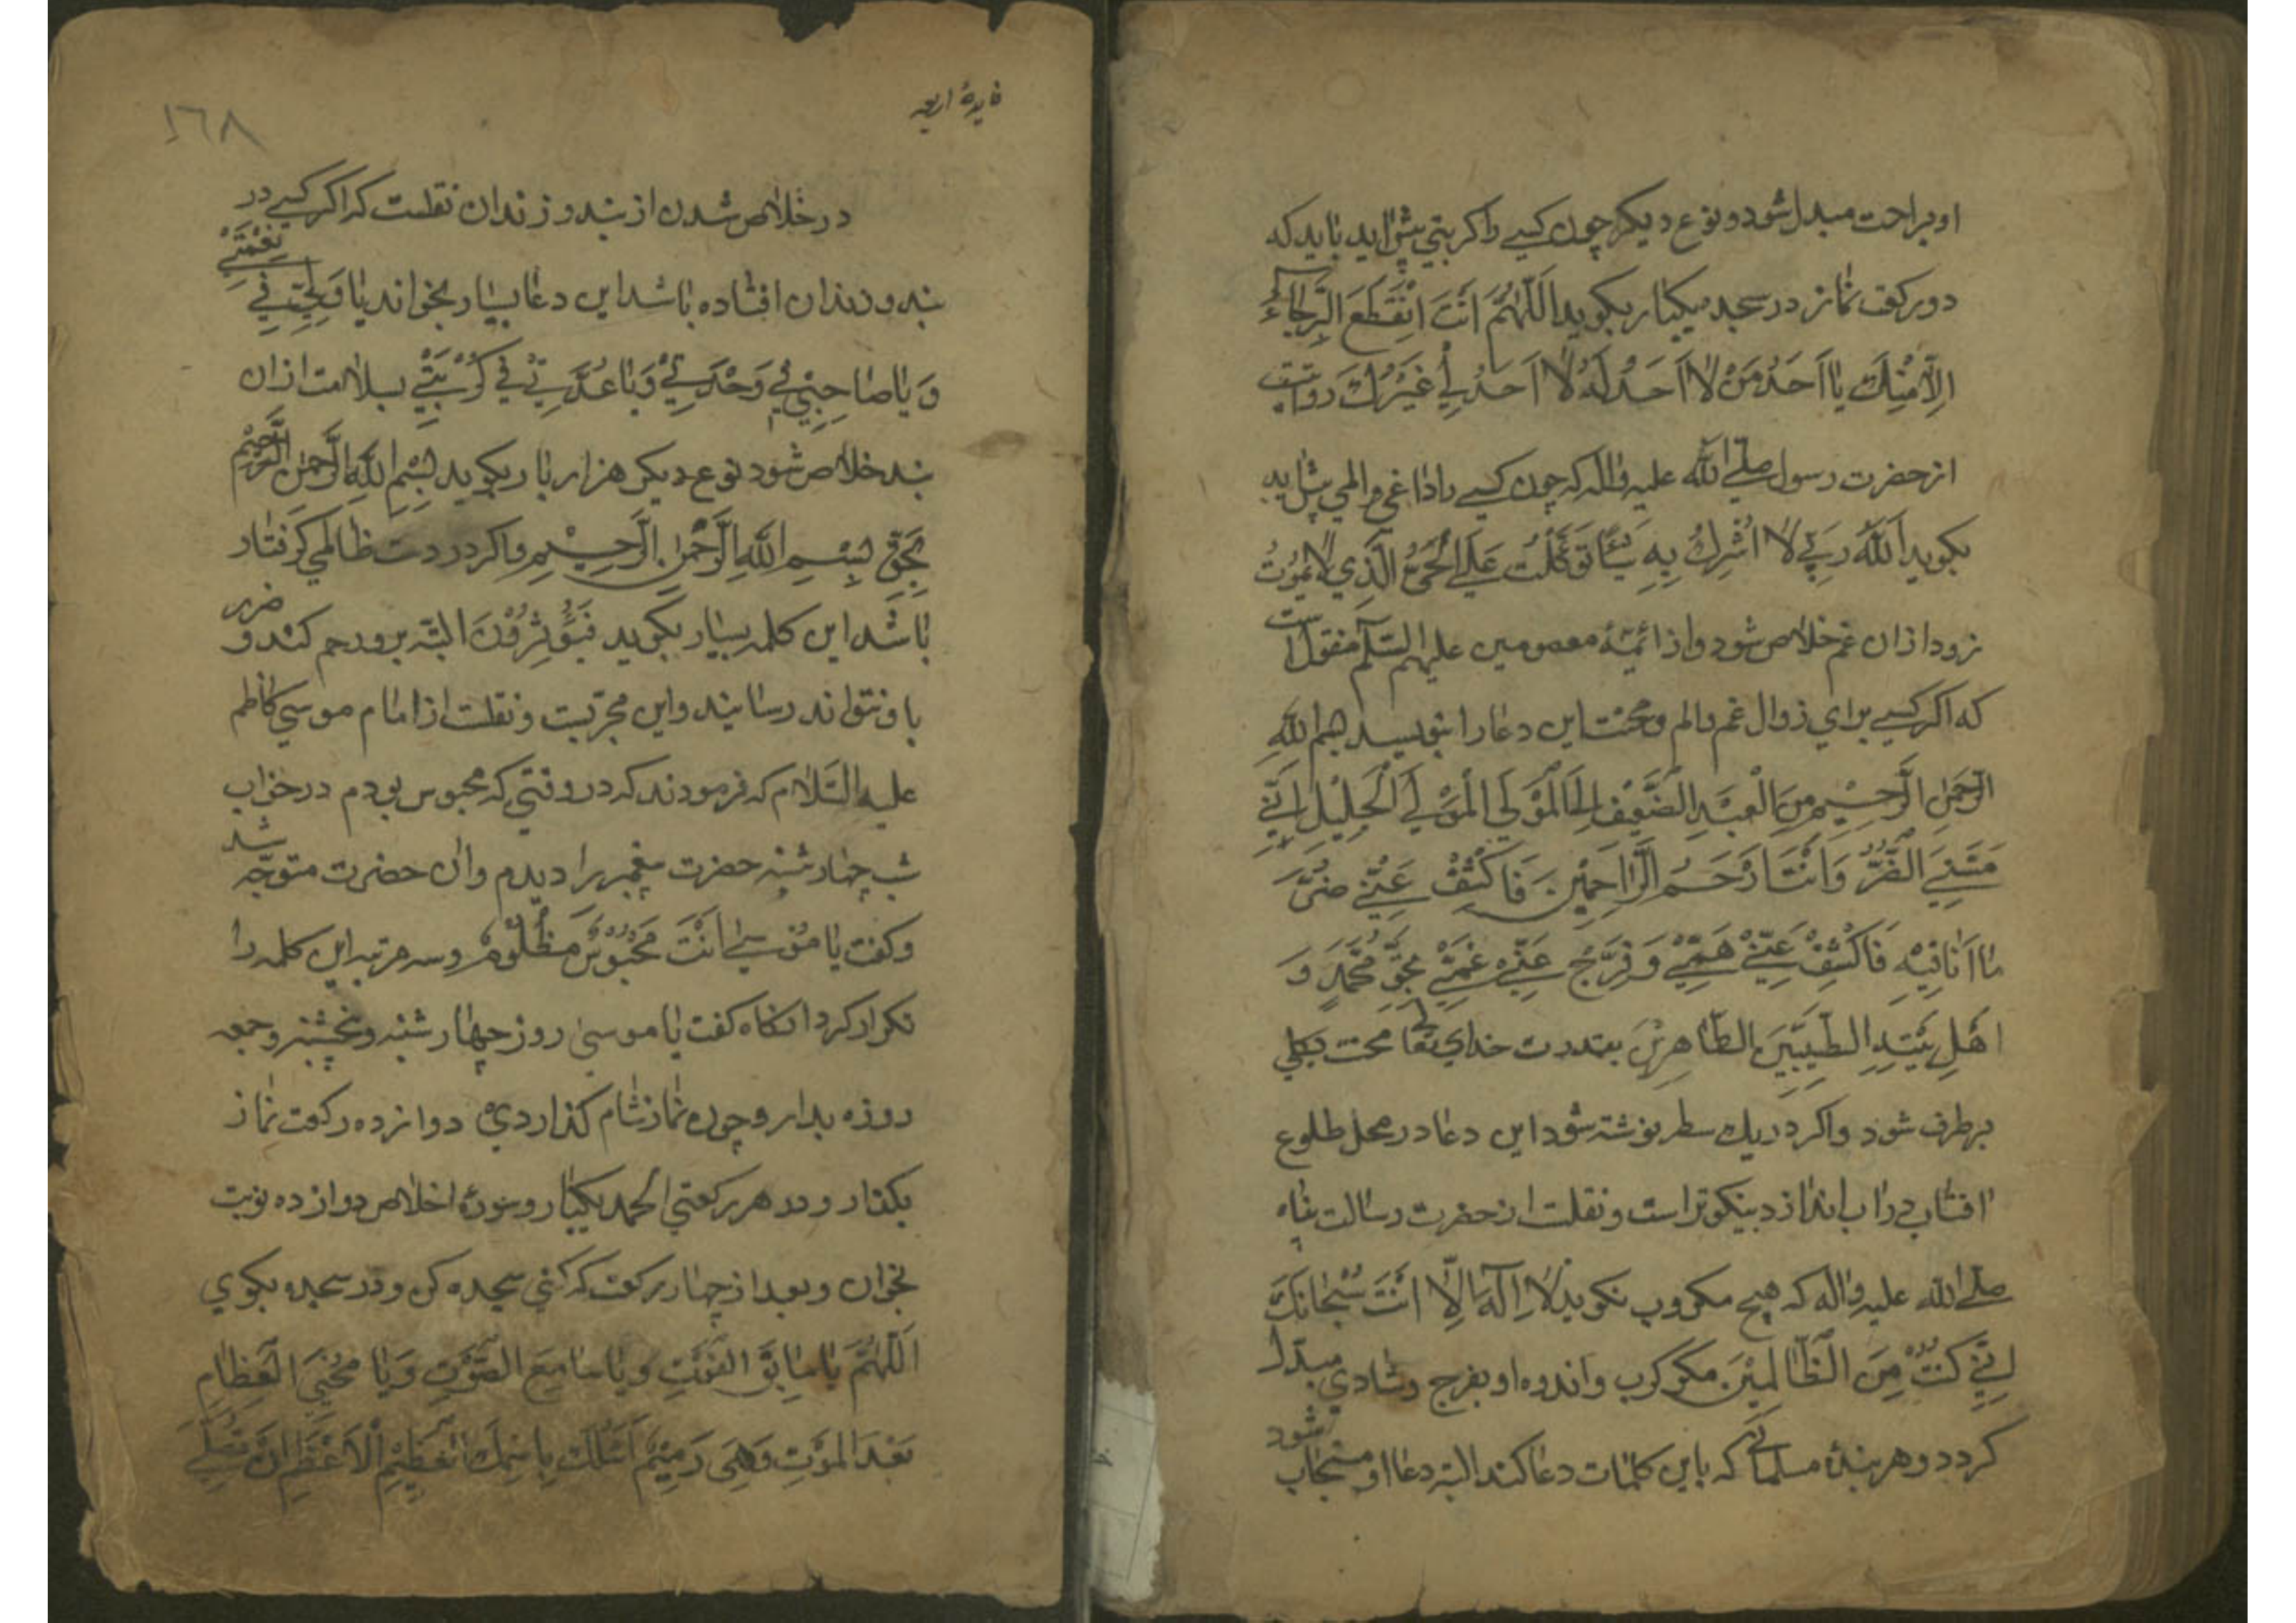 او براحت مبدل شود و نوع دیکر چون کسی را کربتی پیش اید باید که
دو رکعت نماز در سجد یکبار بکوید اَللّٰهُمَّ اَنْتَ اِنْقَطَعَ الرَّجٰآءُ
اِلّا مِنْكَ یٰا اَحَدُ مَنْ لٰا اَحَدَ لَهُ لٰا اَحَدَ لِي غَیْرُكَ روایتست
از حضرت رسول صلی اللّٰه علیه واله که چون کسی را داغی و المی پیش اید
بکوید اَللّٰهُ رَبِّي لٰا اُشْرِكُ بِهِ شَیْئًا تَوَکَّلْتُ عَلَی الْحَيِّ الَّذِي لٰا یَمُوتُ
زود از ان غم خلاص شود و از ائمهٔ معصومین علیهم السّلٰم منقول است
که اکر کسی برای زوال غم و الم و محنت این دعا را بنویسد بسم اللّٰهِ
الرَّحْمٰنِ الرَّحِیْمِ مِنَ الْعَبْدِ الضَّعِیْفِ اِلَی الْمَوْلَی الْمَوْلَی الْجَلِیْلِ اِنِّي
مَسَّنِيَ الضُّرُّ وَ اَنْتَ اَرْحَمُ الرّٰاحِمِیْنَ فَاکْشِفْ عَنِّي ضُرَّ
مٰا اَنٰا فِیْهِ فَاکْشِفْ عَنِّيْ هَمِّيْ وَ فَرِّجْ عَنِّي غَمِّيْ بِحَقِّ مُحَمَّدٍ وَ
اَهْلِ بَیْتِهِ الطَّیِّبِیْنَ الطّٰاهِرِیْنَ بقدرت خدای تعالی محنت بکلی
برطرف شود و اکر در یك سطر نوشته شود این دعا در محل طلوع
افتاب در اب اندازد نیکوتر است و نقلت از حضرت رسالت پناه
صلی اللّٰه علیه واله که هیچ مکروب نکوید لٰا اِلٰهَ اِلّٰا اَنْتَ سُبْحٰانَكَ
اِنِّي کُنْتُ مِنَ الظّٰالِمِیْنَ مکر کرب و اندوه او بفرج و شادی مبدّل
کردد و هر بندهٔ مسلمانی که باین کلمات دعا کند البته دعا او مستجاب شود
فایدهٔ اربعه
١٦٨
در خلاص شدن از بند و زندان نقلست که اکر کسی در
بند و زندان افتاده باشد این دعا بسیار بخواند یٰا وَلِیِّي فِي نِعْمَتِيْ
وَ یٰا صٰاحِبِيْ فِي وَحْدَتِيْ وَ یٰا عُدَّتِيْ فِي کُرْبَتِيْ بسلامت از ان
بند خلاص شود نوع دیکر هزار بار بکوید بِسْمِ اللّٰهِ الرَّحْمٰنِ الرَّحِیْمِ
بِحَقِّ بِسْمِ اللّٰهِ الرَّحْمٰنِ الرَّحِیْمِ و اکر در دست ظالمی کرفتار
باشد این کلمه بسیار بکوید البته برو رحم کند و ضرر
باو نتواند رسانید و این مجربست و نقلت از امام موسی کاظم
علیه السّلام که فرمودند که در وقتی که محبوس بودم در خواب
شب چهارشنبه حضرت پیغمبر را دیدم و ان حضرت متوجّه شد
و کفت یٰا مُوْسٰی اَنْتَ مَحْبُوْسٌ مَظْلُوْمٌ و سه مرتبه این کلمه را
تکرار کرد انکاه کفت یا موسی روز چهارشنبه و پنجشنبه و جمعه
روزه بدار و چون نماز شام کذاردی دوازده رکعت نماز
بکذار و در هر رکعتی الحمد یکبار و سورهٔ اخلاص دوازده نوبت
بخوان و بعد از چهار رکعت که کنی سجده کن و در سجده بکوی
اَللّٰهُمَّ یٰا سٰابِقَ الْفَوْتِ وَ یٰا سٰامِعَ الصَّوْتِ وَ یٰا مُحْیِيَ الْعِظٰامِ
بَعْدَ الْمَوْتِ وَ هِيَ رَمِیْمٌ اَسْئَلُكَ بِاسْمِكَ الْعَظِیْمِ الْاَعْظَمِ اَنْ تُصَلِّيَ